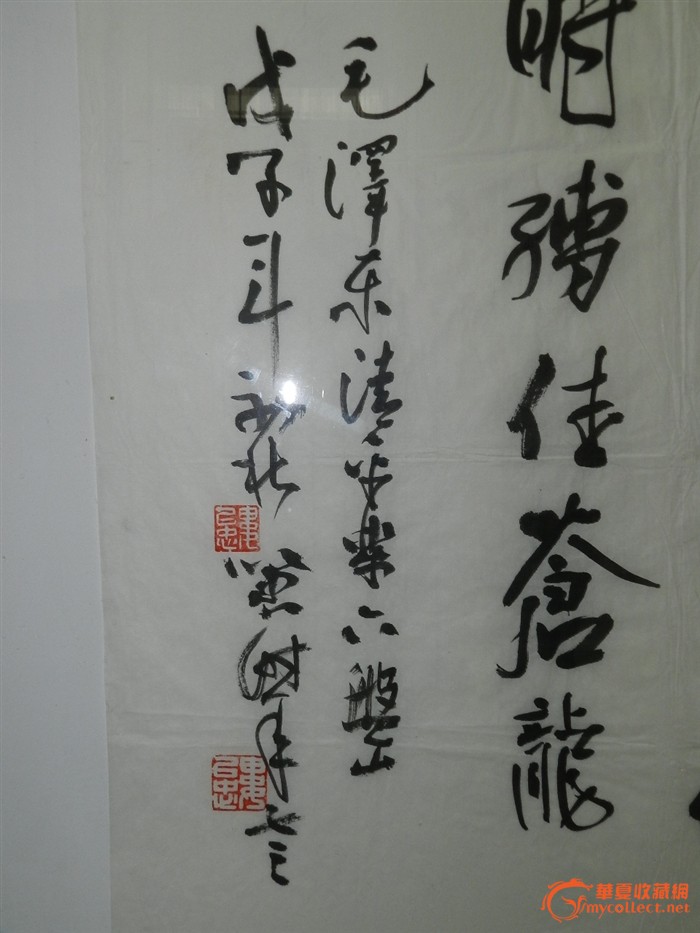 時縛住蒼龍
毛澤东清平乐六盤山
戊子年初秋
年七三
華夏收藏網
mycollect.net